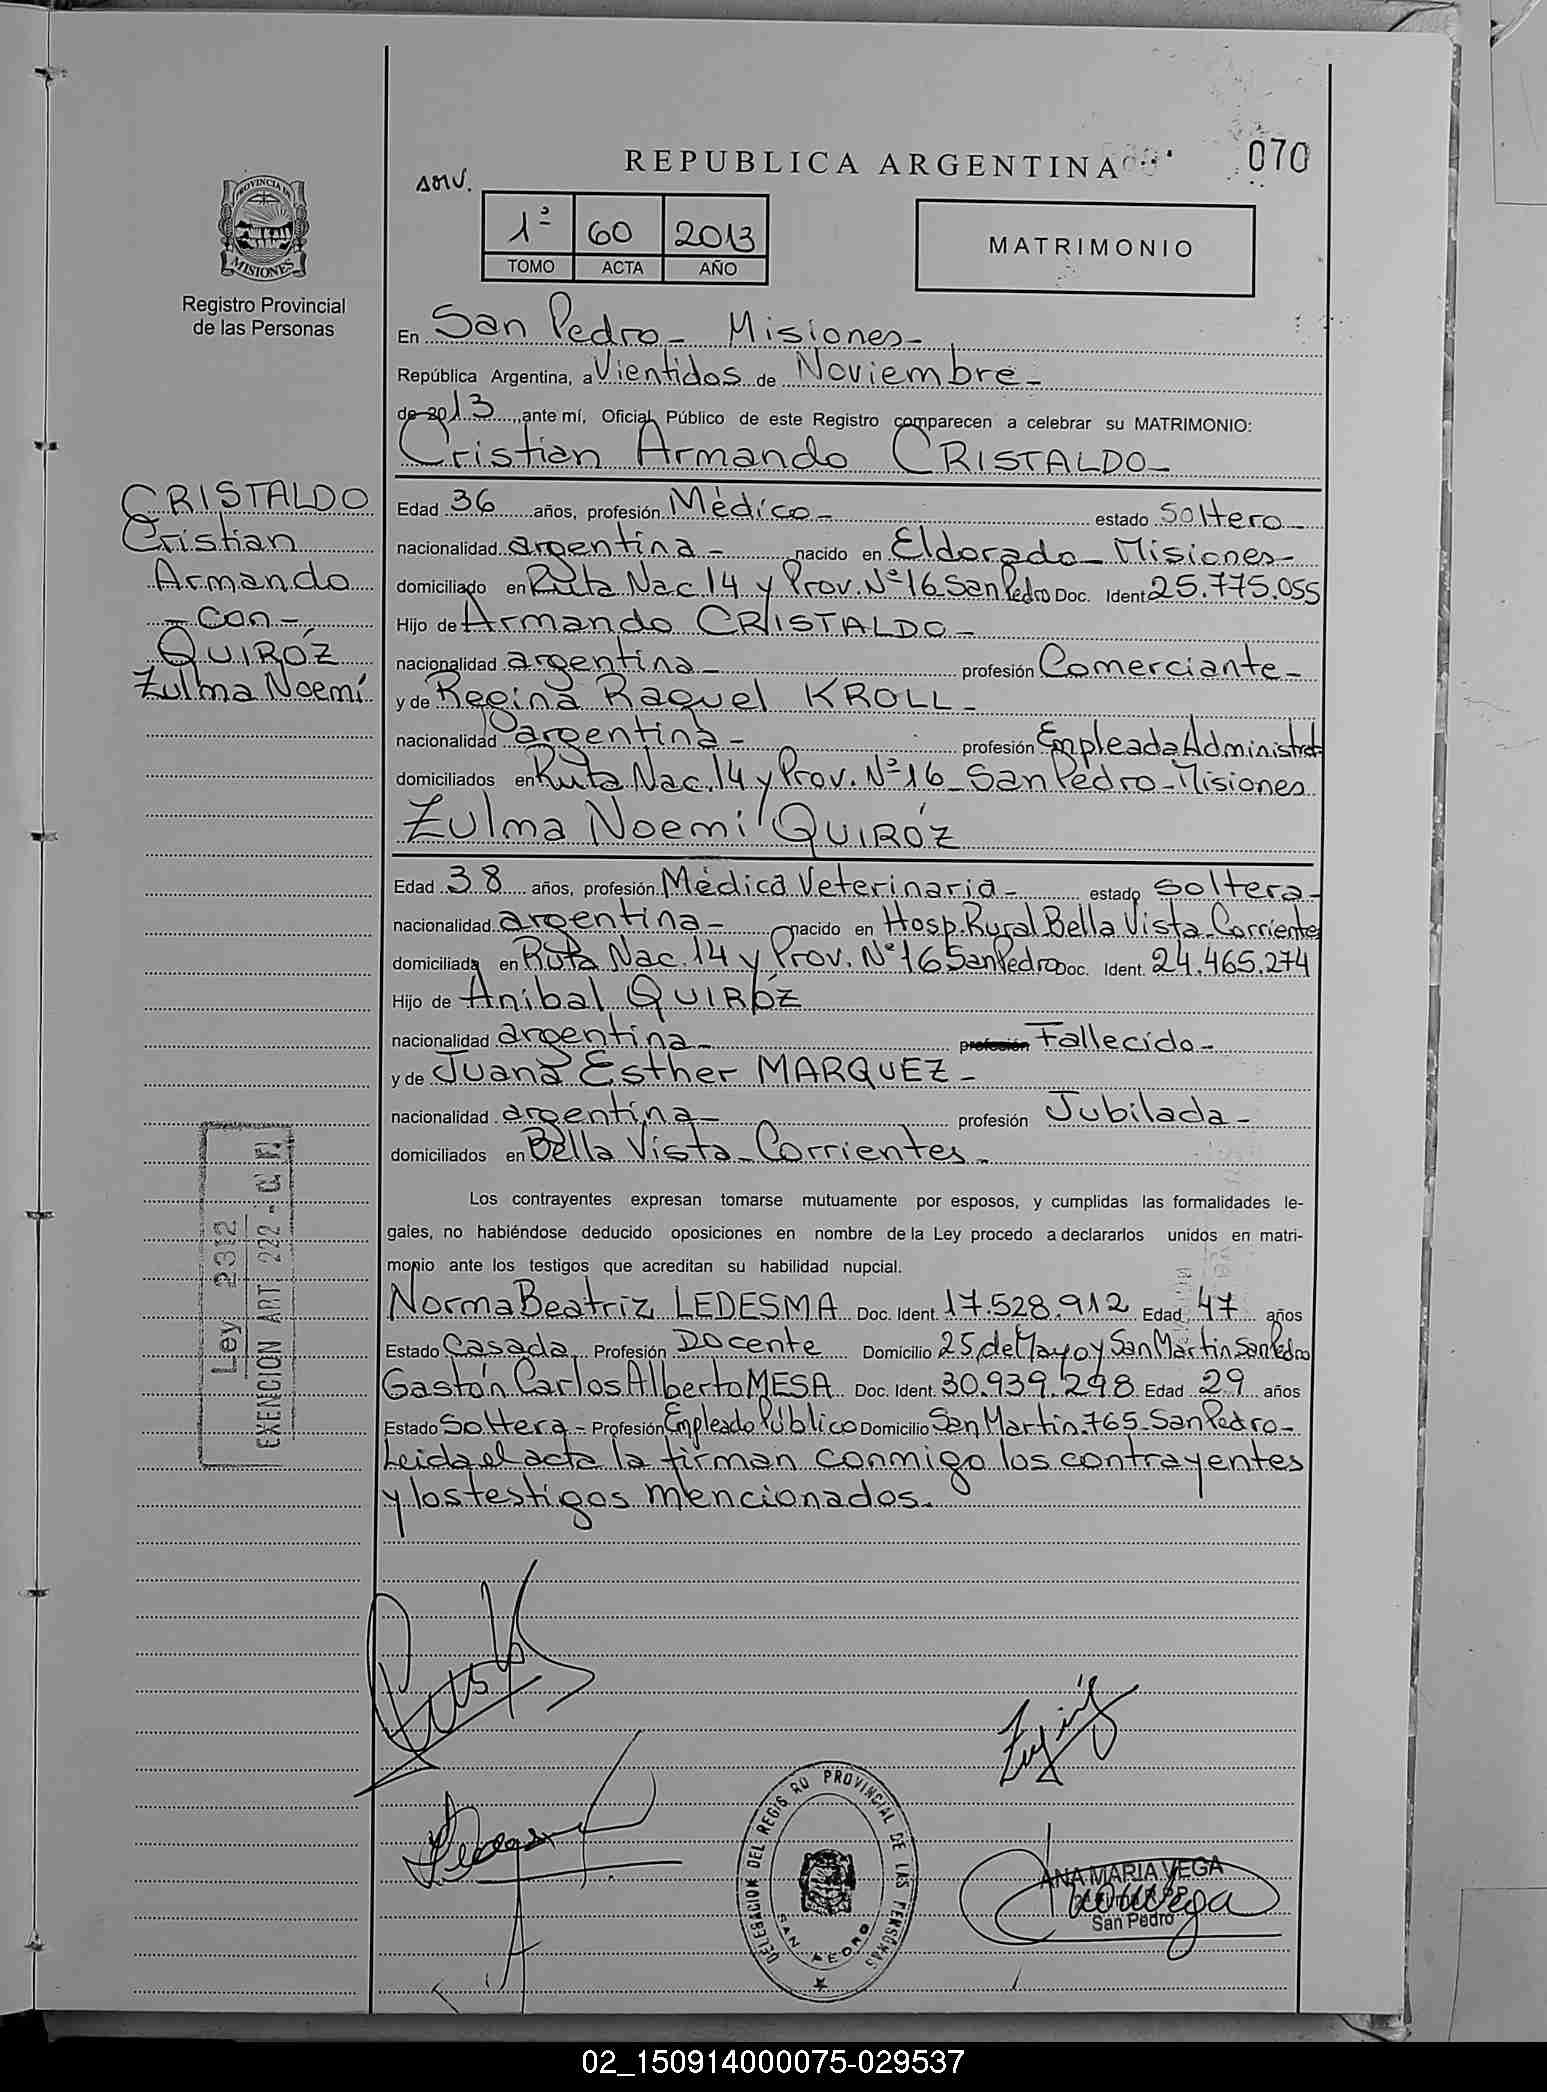 REPUBLICA ARGENTINA
070
PROVINCIA DE
MISIONES
Registro Provincial
de las Personas
1º 60 2013
TOMO ACTA AÑO
MATRIMONIO
En San Pedro - Misiones -
República Argentina, a Vientidos de Noviembre -
de 2013, ante mí, Oficial Público de este Registro comparecen a celebrar su MATRIMONIO:
Cristian Armando CRISTALDO -
CRISTALDO
Cristian
Armando
- con -
QUIRÓZ
Zulma Noemí
Edad 36 años, profesión Médico - estado soltero -
nacionalidad argentina - nacido en Eldorado - Misiones -
domiciliado en Ruta Nac 14 y Prov. Nº 16 San Pedro Doc. Ident. 25.775.055
Hijo de Armando CRISTALDO -
nacionalidad argentina - profesión Comerciante -
y de Regina Raquel KROLL -
nacionalidad argentina - profesión Empleada Administrat
domiciliados en Ruta Nac. 14 y Prov. Nº 16 - San Pedro - Misiones
Zulma Noemí QUIRÓZ
Edad 38 años, profesión Médica Veterinaria - estado soltera -
nacionalidad argentina - nacido en Hosp. Rural Bella Vista - Corrientes
domiciliada en Ruta Nac. 14 y Prov. Nº 16 San Pedro Doc. Ident. 24.465.274
Hijo de Anibal QUIRÓZ
nacionalidad argentina - profesión Fallecido -
y de Juana Esther MARQUEZ -
nacionalidad argentina - profesión Jubilada -
domiciliados en Bella Vista - Corrientes -
Los contrayentes expresan tomarse mutuamente por esposos, y cumplidas las formalidades le-
gales, no habiéndose deducido oposiciones en nombre de la Ley procedo a declararlos unidos en matri-
monio ante los testigos que acreditan su habilidad nupcial.
Norma Beatriz LEDESMA Doc. Ident. 17.528.912 Edad 47 años
Estado Casada Profesión Docente Domicilio 25 de Mayo y San Martin San Pedro
Gastón Carlos Alberto MESA Doc. Ident. 30.939.298 Edad 29 años
Estado Soltero - Profesión Empleado Público Domicilio San Martin 765 - San Pedro -
Leida el acta la firman conmigo los contrayentes
y los testigos mencionados.
Ley 2312
EXENCION ART. 222 - C.F.
DELEGACION DEL REGISTRO PROVINCIAL DE LAS PERSONAS
SAN PEDRO
ANA MARIA VEGA
San Pedro
02_150914000075-029537